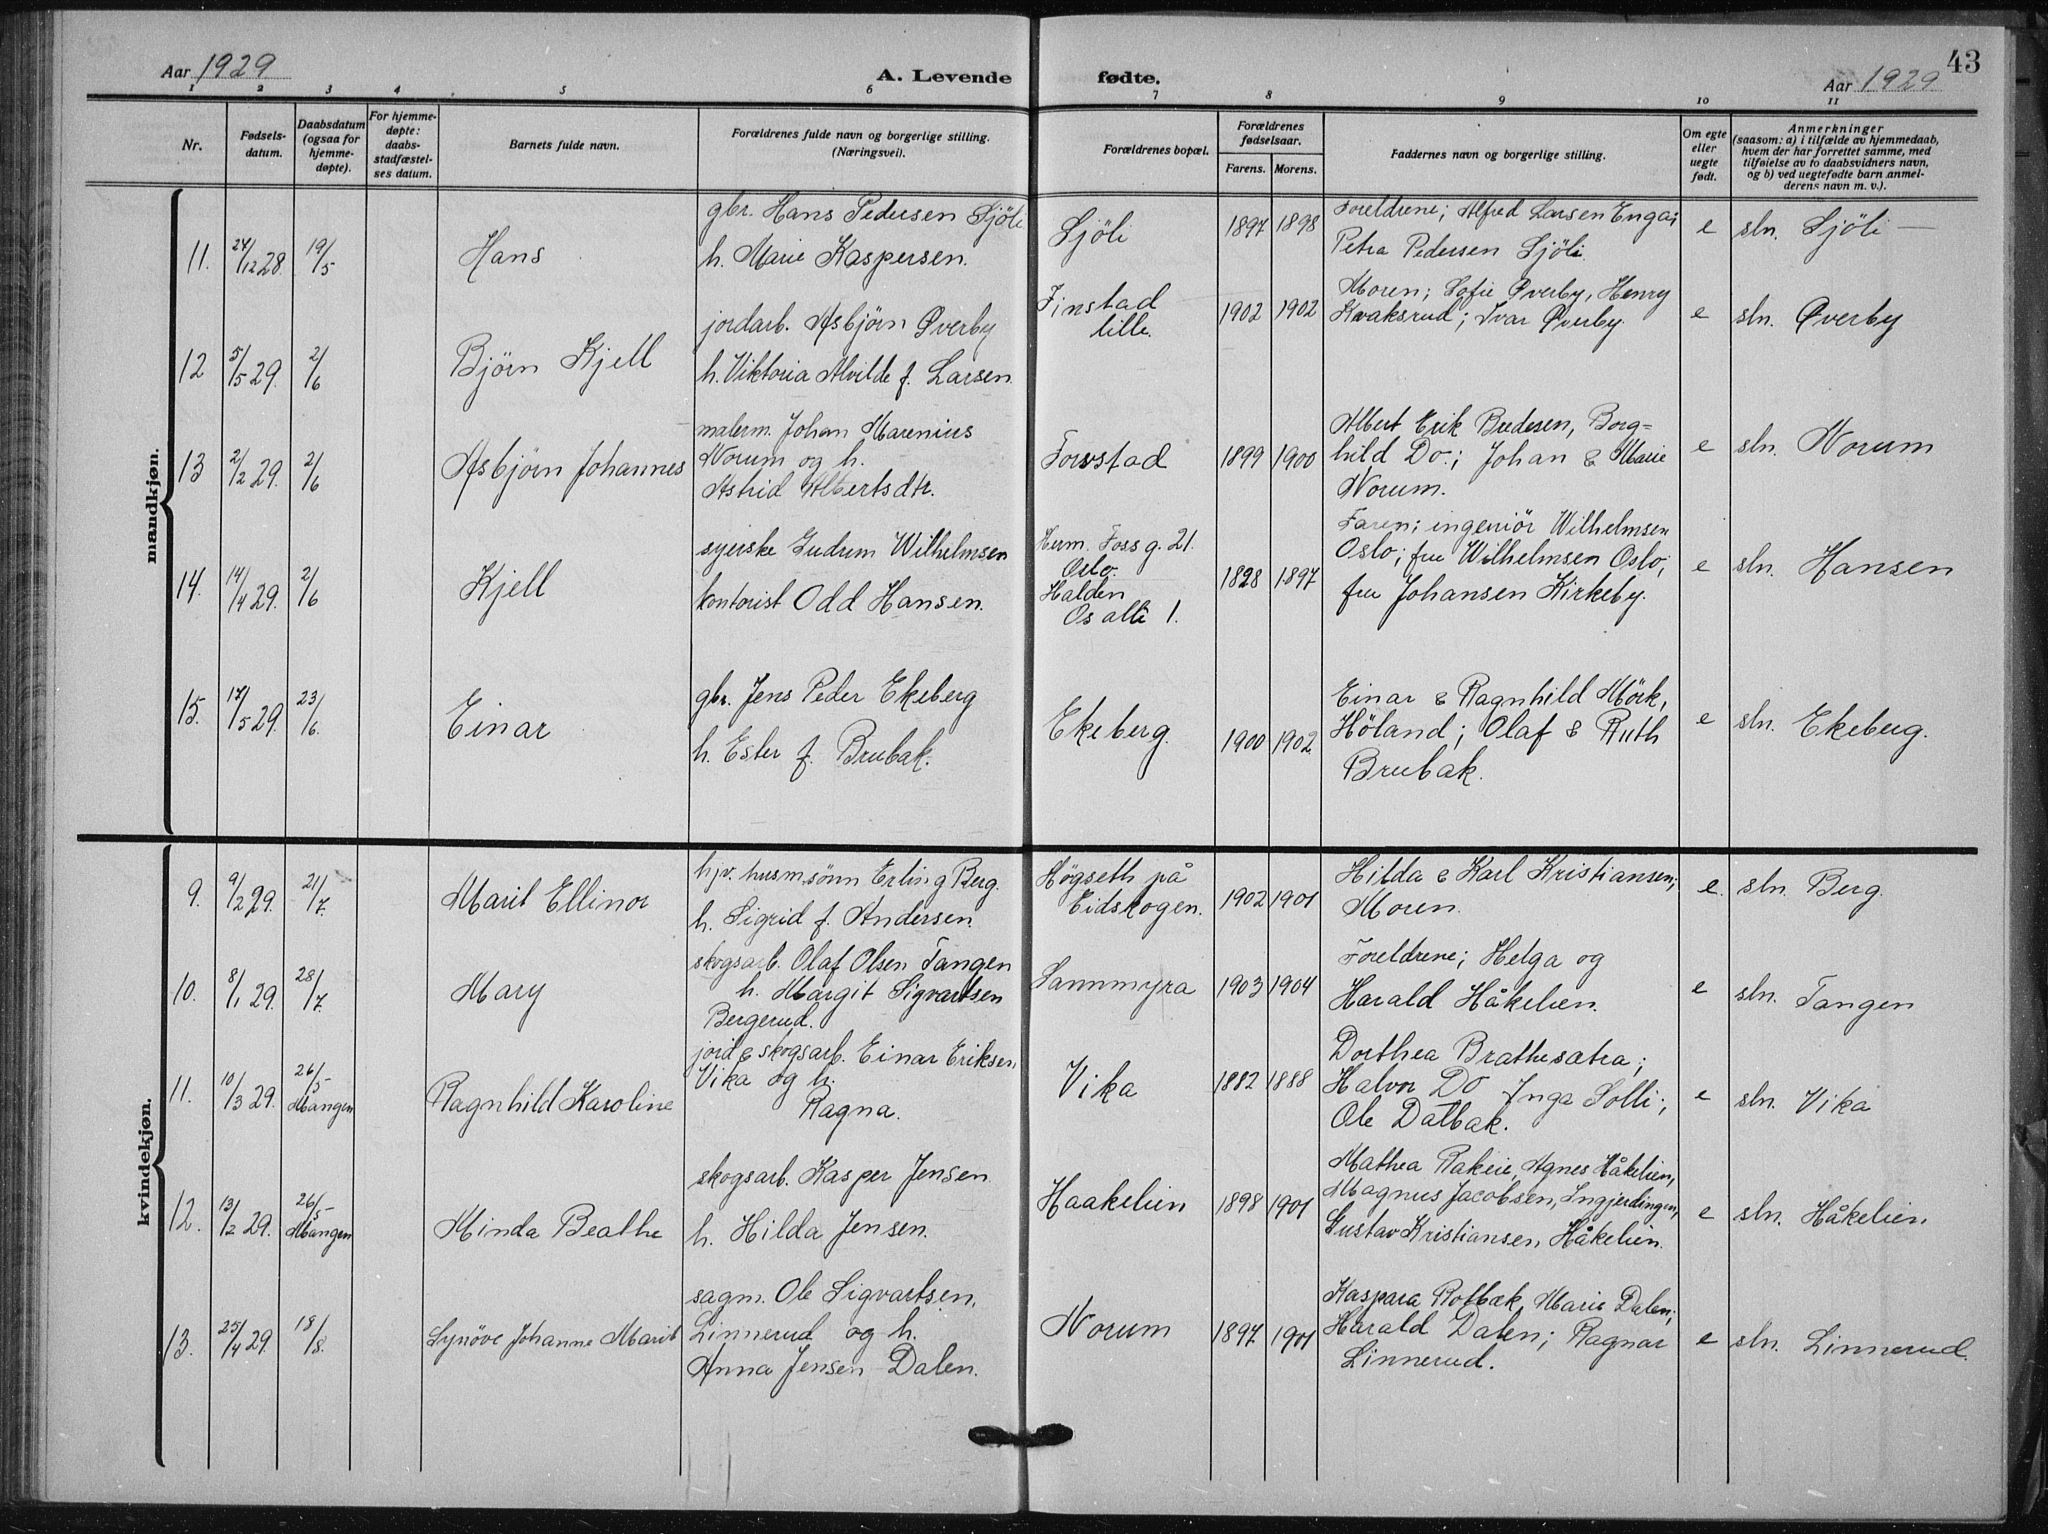 43
Aar 1929
A. Levende fødte.
Aar 1929
1 2 3 4 5 6 7 8 9 10 11
Nr.
Fødsels-
datum.
Daabsdatum
(ogsaa for
hjemme-
døpte).
For hjemme-
døpte:
daabs-
stadfæstel-
ses datum.
Barnets fulde navn.
Forældrenes fulde navn og borgerlige stilling.
(Næringsvei).
Forældrenes bopæl.
Forældrenes
fødselsaar.
Farens. Morens.
Faddernes navn og borgerlige stilling.
Om egte
eller
uegte
født.
Anmerkninger
(saasom: a) i tilfælde av hjemmedaab,
hvem der har forrettet samme, med
tilføielse av to daabsvidners navn,
og b) ved uegtefødte barn anmel-
derens navn m. v.).
mandkjøn.
11. 24/12 28. 19/5
Hans
gbr. Hans Pedersen Sjöli
h. Marie Kaspersen.
Sjöli
1897 1898
Foreldrene; Alfred Larsen Enga;
Petra Pedersen Sjöli.
e
sln. Sjöli —
12 5/5 29. 2/6
Bjørn Kjell
jordarb. Asbjørn Øverby
h. Viktoria Alvilde f. Larsen.
Finstad
lille.
1902 1902
Moren; Sofie Øverby, Henry
Kvaksrud; Ivar Øverby.
e
sln. Øverby
13 2/2 29. 2/6
Asbjørn Johannes
malerm. Johan Marenius
Norum og h.
Astrid Albertsdtr.
Forstad
1899 1900
Albert Erik Bredesen, Borg=
hild Do.; Johan & Marie
Norum.
e
sln. Norum
14. 14/4 29. 2/6
Kjell
syerske Gudrun Wilhelmsen
kontorist Odd Hansen.
Herm. Foss g. 21.
Oslo.
Halden
Os allé 1.
1828 1897
Faren; ingeniör Wilhelmsen
Oslo; fru Wilhelmsen Oslo;
fru Johansen Kirkeby.
e
sln. Hansen
15. 17/5 29. 23/6.
Einar
gbr. Jens Peder Ekeberg
h. Ester f. Brubak.
Ekeberg.
1900 1902
Einar & Ragnhild Mörk,
Höland; Olaf & Ruth
Brubak.
e
sln. Ekeberg.
kvindekjøn.
9. 9/2 29. 21/7.
Marit Ellinor
hjv. husm.sønn Erling Berg.
h. Sigrid f. Andersen.
Høgseth på
Eidskogen.
1902 1901
Hilda & Karl Kristiansen;
Moren.
e.
sln. Berg.
10. 8/1 29. 28/7.
Mary
skogsarb. Olaf Olsen Tangen
h. Margit Sigvartsen
Bergerud.
Sannmyra
1903 1904
Foreldrene; Helga og
Harald Håkelien.
e
sln. Tangen
11. 10/3 29. 26/5-
Mangen
Ragnhild Karoline
jord & skogsarb. Einar Eriksen
Vika og h.
Ragna.
Vika
1882 1888
Dorthea Brathesætra;
Halvor Do Inga Solli;
Ole Dalbak.
e
sln. Vika
12. 13/2 29. 26/5-
Mangen
Minda Beathe
skogsarb. Kasper Jensen
h. Hilda Jensen.
Haakelien
1898 1901
Mathea Rakeie, Agnes Håkelien,
Magnus Jacobsen, Ingjerdingen,
Gustav Kristiansen Håkelien.
e
sln. Håkelien
13. 25/4 29. 18/8.
Synöve Johanne Marit
sagm. Ole Sigvartsen,
Linnerud og h.
Anna Jensen Dalen.
Norum
1897 1901
Kaspara Rolbæk, Marie Dalen;
Harald Dalen; Ragnar
Linnerud.
e
sln. Linnerud.